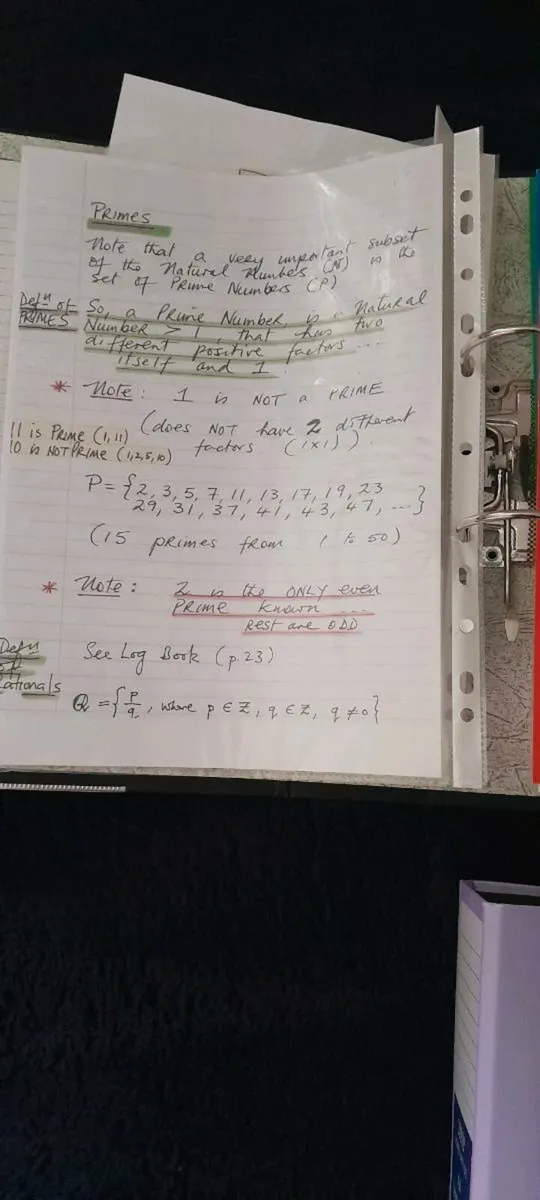 PRIMES
Note that a very important subset
of the Natural Numbes (N) is the
set of Prime Numbers (P)
Defⁿ of
PRIMES
So, a Prime Number, is a Natural
Number > 1, that has two
different positive factors ...
itself and 1.
* Note: 1 is NOT a PRIME
(does NOT have 2 different
factors (1x1)).
11 is PRIME (1,11)
10 is NOT PRIME (1,2,5,10)
P = {2, 3, 5, 7, 11, 13, 17, 19, 23
29, 31, 37, 41, 43, 47, ...}
(15 primes from 1 to 50)
* Note: 2 is the ONLY even
PRIME known ...
REST are ODD
Defⁿ
of
Rationals
See Log Book (p.23)
Q = {p/q, where p ∈ Z, q ∈ Z, q ≠ 0}